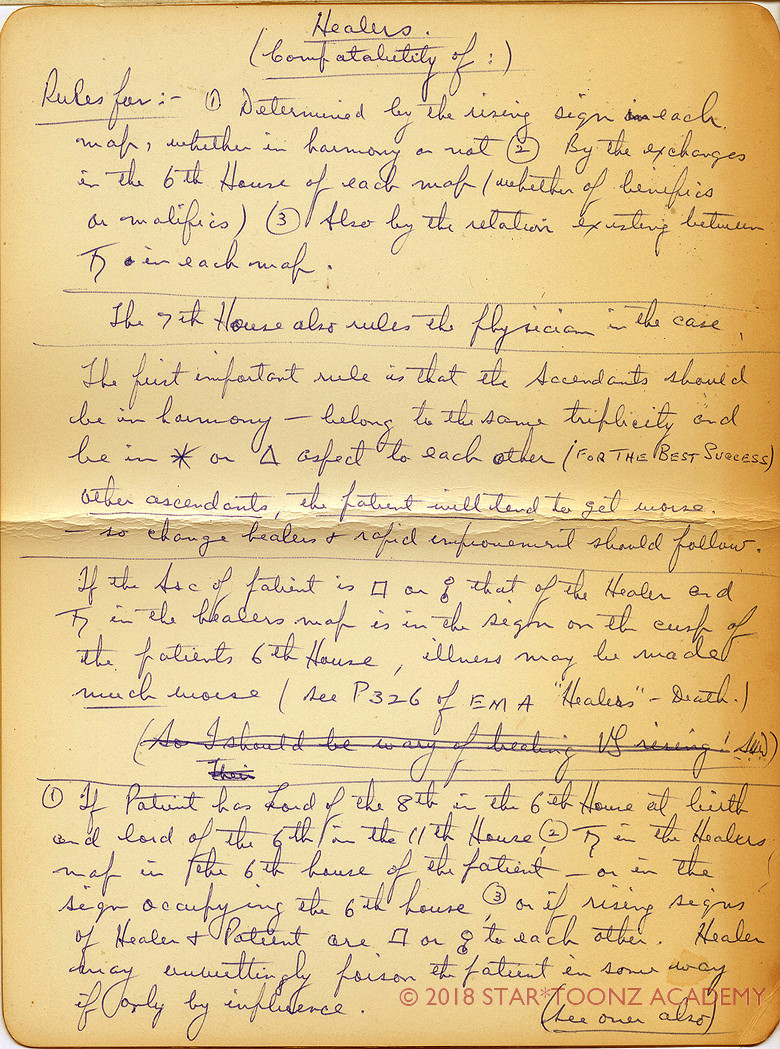 Healers.
(Compatabetity of:)
Rules for:- ① Determined by the rising sign in each
map, whether in harmony or not ② By the exchanges
in the 6th House of each map (whether of benefics
or malifics) ③ Also by the relation existing between
♄ in each map.
The 7th House also rules the physician in the case.
The first important rule is that the Ascendants should
be in harmony – belong to the same triplicity and
be in ⚹ or △ aspect to each other (FOR THE BEST SUCCESS)
other ascendants, the patient will tend to get worse.
– so change healers & rapid improvement should follow.
If the Asc of patient is □ or ☍ that of the Healer and
♄ in the healers map is in the sign on the cusp of
the patients 6th House, illness may be made
much worse (see P326 of EMA "Healers" – Death.)
(So I should be wary of treating ♑ rising!
Their
① If Patient has Lord of the 8th in the 6th House at birth
and lord of the 6th in the 11th House, ② ♄ in the Healers
map in the 6th house of the patient – or in the
sign occupying the 6th house, ③ or if rising signs
of Healer & Patient are □ or ☍ to each other. Healer
may unwittingly poison the patient in some way
if only by influence.
(see over also)
© 2018 STAR*TOONZ ACADEMY